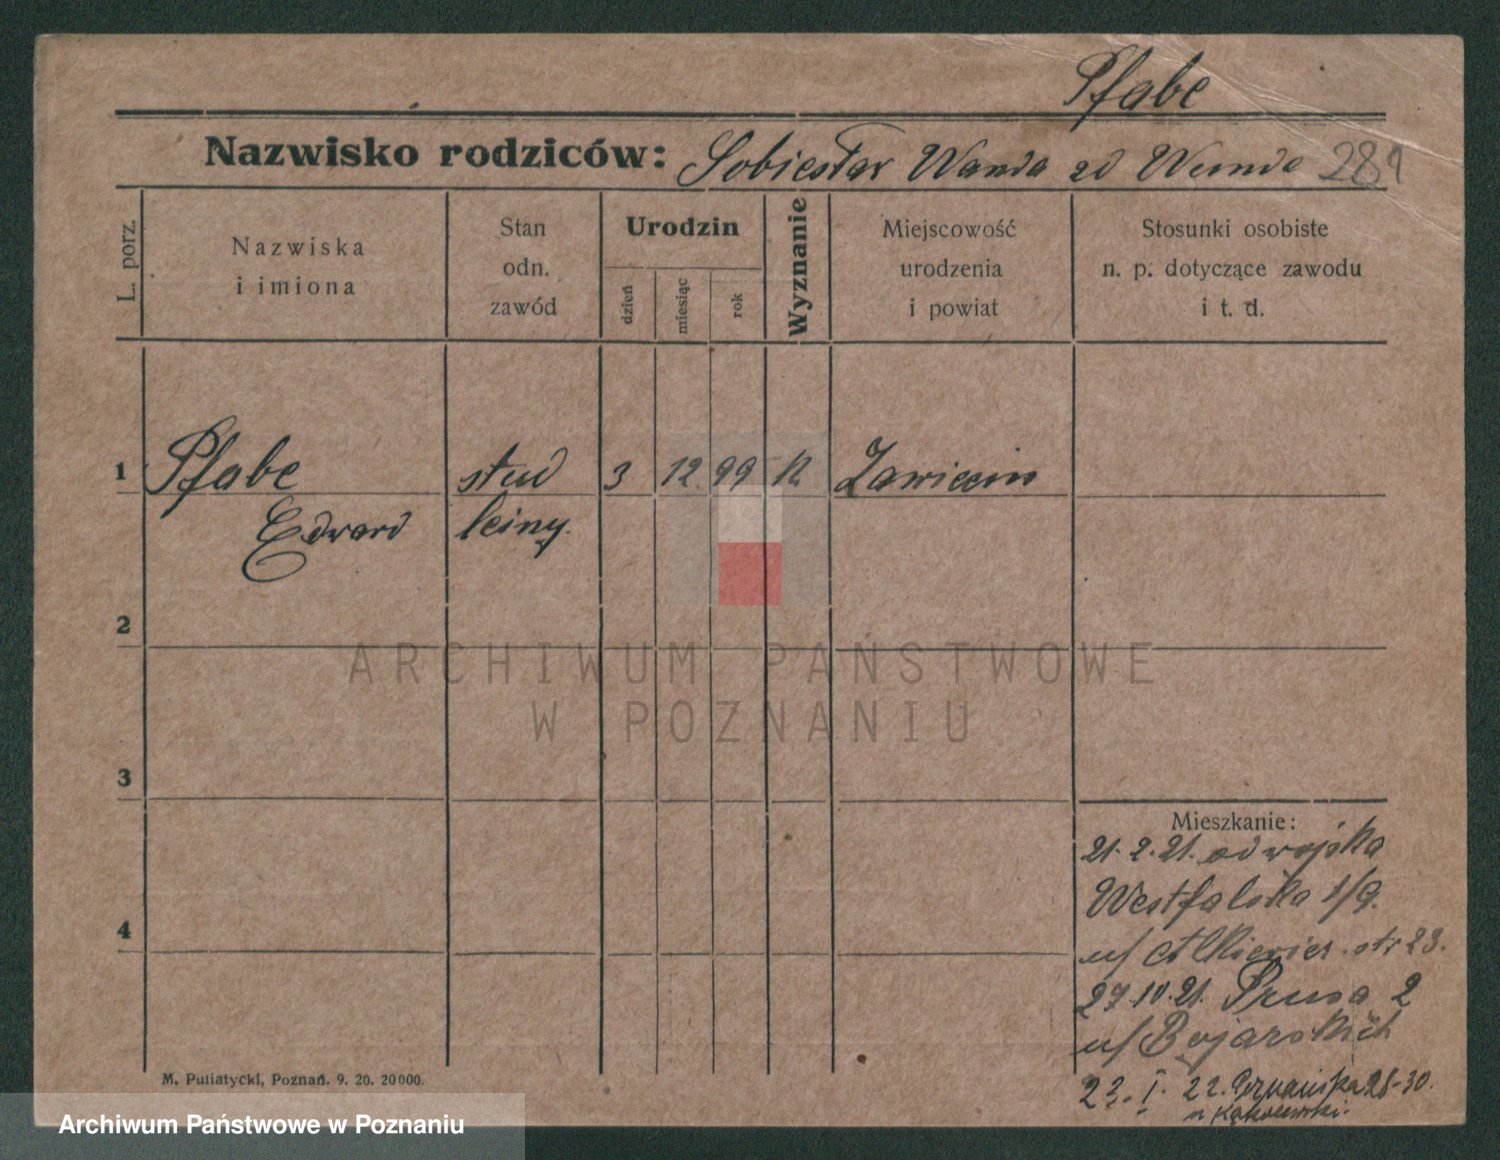 Pfabe
Nazwisko rodziców: Wanda 281
L. porz.
Nazwiska
i imiona
Stan
odn.
zawód
Urodzin
dzień
miesiąc
rok
Wyznanie
Miejscowość
urodzenia
i powiat
Stosunki osobiste
n. p. dotyczące zawodu
i t. d.
1 Pfabe stud 3 12. 99 K
Edward
2
3
4
Mieszkanie:
21.2.21. od wojska
Westfalska 1/9.
u/ str 23.
27.10.21. Prusa 2
u/ Bojarskich
23. I. 22. 28-30.
M. Putiatycki, Poznań. 9. 20. 20000.
ARCHIWUM PAŃSTWOWE
W POZNANIU
Archiwum Państwowe w Poznaniu